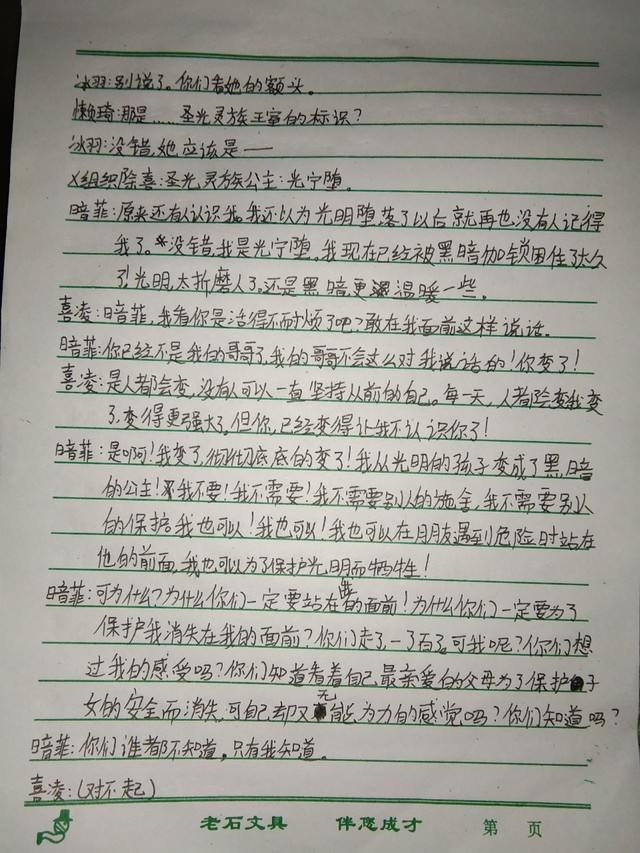 冰羽:别说了。你们看她的额头。
懒琦:那是……圣光灵族王室的标识?
冰羽:没错,她应该是——
X组织除喜:圣光灵族公主:光宁堕。
暗菲:原来还有人认识我。我还以为光明堕落了以后就再也没有人记得
我了。没错,我是光宁堕。我现在已经被黑暗加锁困住了太久
了!光明,太折磨人了。还是黑暗更温暖一些。
喜凌:暗菲,我看你是活得不耐烦了吧?敢在我面前这样说话。
暗菲:你已经不是我的哥哥了,我的哥哥不会这么对我说话的!你变了!
喜凌:是人都会变,没有人可以一直坚持从前的自己。每一天,人都会变我变
了,变得更强大了。但你,已经变得让我不认识你了!
暗菲:是啊!我变了,彻彻底底的变了!我从光明的孩子变成了黑暗
的公主!我不要!我不需要!我不需要别人的施舍,我不需要别人
的保护。我也可以!我也可以!我也可以在朋友遇到危险时站在
他的前面,我也可以为了保护光明而牺牲!
暗菲:可为什么?为什么你们一定要站在我的面前!为什么你们一定要为了
保护我消失在我的面前?你们走了,一了百了。可我呢?你们想
过我的感受吗?你们知道看着自己最亲爱的父母为了保护子
女的安全而消失,可自己却又无能为力的感觉吗?你们知道吗?
暗菲:你们谁都不知道,只有我知道。
喜凌:(对不起)
老石文具 伴您成才 第 页